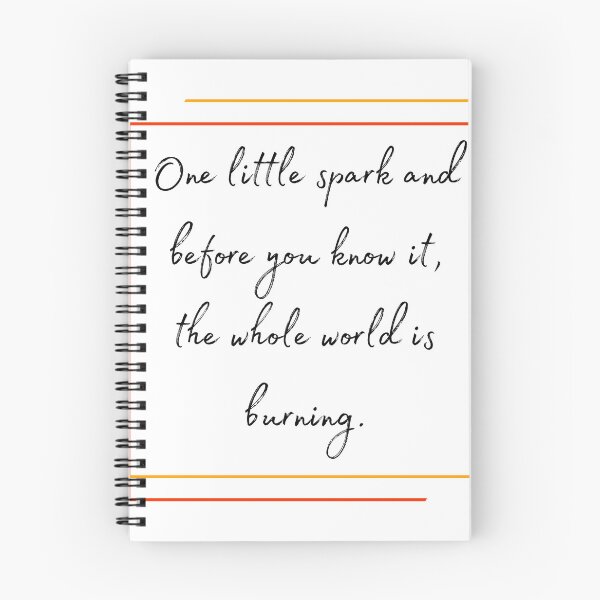 One little spark and
before you know it,
the whole world is
burning.